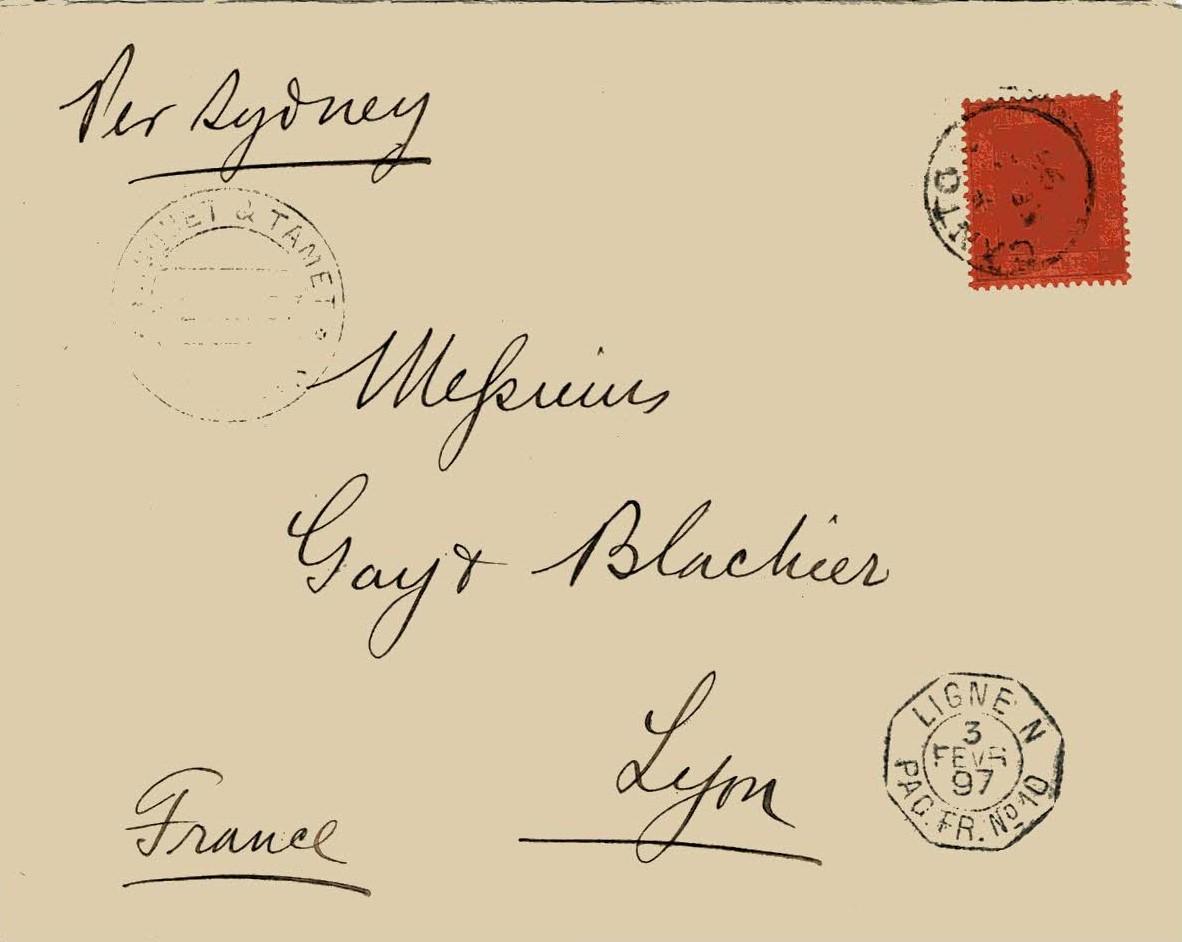 Per Sydney
& TAMET
CANTO
Messieurs
Gay & Blachier
Lyon
France
LIGNE N
3
FEVR
97
PAQ. FR. No 10